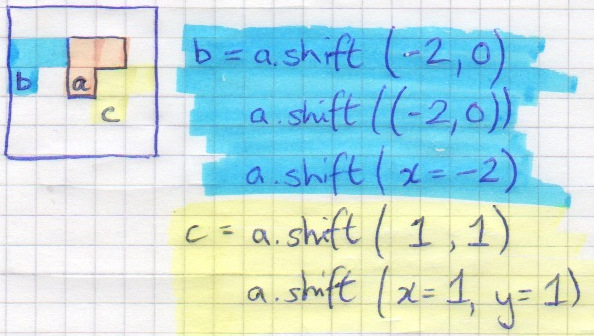 b
a
c
b = a.shift (-2, 0)
a.shift ((-2, 0))
a.shift (x = -2)
c = a.shift (1, 1)
a.shift (x = 1, y = 1)